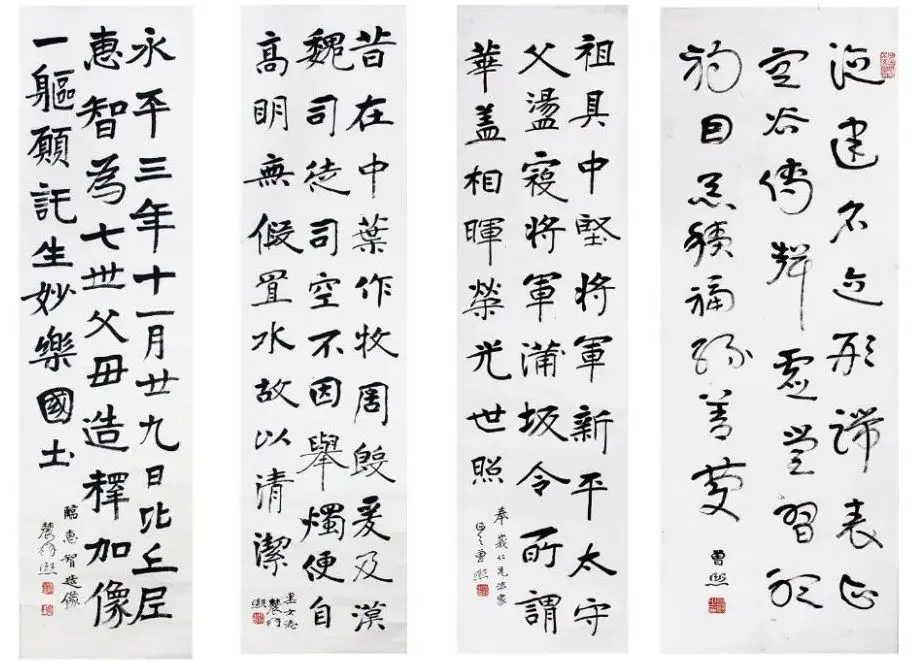 德建名立形端表正
空谷傳聲虛堂習聽
禍因惡積福緣善慶
曾熙
祖具中堅將軍新平太守
父盪寇將軍蒲坂令所謂
華蓋相暉榮光世照
奉義仁兄法家
曾熙
昔在中葉作牧周殷爰及漢
魏司徒司空不因舉燭便自
高明無假置水故以清潔
黑女志
農髯熙
永平三年十一月廿九日比丘尼
惠智為七世父母造釋加像
一軀願託生妙樂國土
臨惠智造像
農髯熙